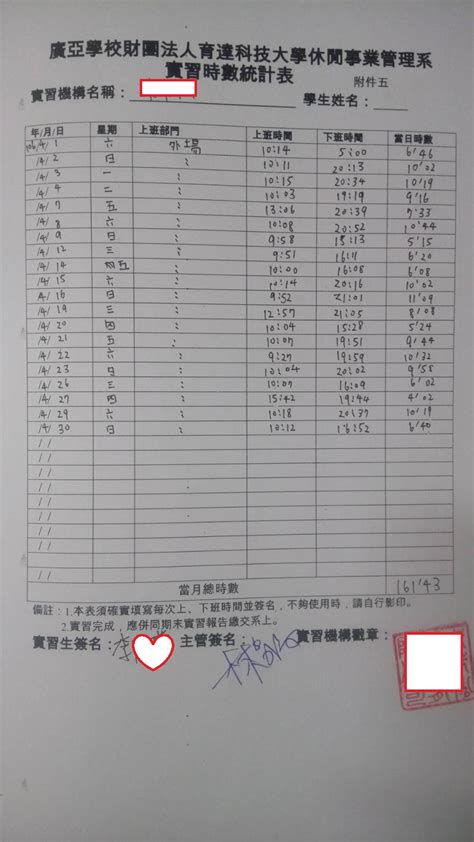 廣亞學校財團法人育達科技大學休閒事業管理系
實習時數統計表
附件五
實習機構名稱： 學生姓名：
年/月/日 星期 上班部門 上班時間 下班時間 當日時數
106/4/1 六 外場 10:14 5:00 6'46
/4/2 日 : 10:11 20:13 10'02
/4/3 一 : 10:15 20:34 10'19
/4/4 二 : 10:03 19:19 9'16
/4/7 五 : 13:06 20:39 7'33
/4/8 六 : 10:08 20:52 10'44
/4/9 日 : 9:58 15:13 5'15
/4/12 三 : 9:51 16:11 6'20
/4/14 五 : 10:00 16:08 6'08
/4/15 六 : 10:14 20:16 10'02
/4/16 日 : 9:52 21:01 11'09
/4/19 三 : 12:57 21:05 8'08
/4/20 四 : 10:04 15:28 5'24
/4/21 五 : 10:07 19:51 9'44
/4/22 六 : 9:27 19:59 10'32
/4/23 日 : 10:04 20:02 9'58
/4/26 三 : 10:07 16:09 6'02
/4/27 四 : 15:42 19:44 4'02
/4/29 六 : 10:18 20:37 10'19
/4/30 日 : 10:12 16:52 6'40
/ /
/ /
/ /
/ /
/ /
/ /
/ /
/ /
當月總時數 161'43
備註：1.本表須確實填寫每次上、下班時間並簽名，不夠使用時，請自行影印。
2.實習完成，應併同期末實習報告繳交系上。
實習生簽名：李 主管簽名： 實習機構戳章：